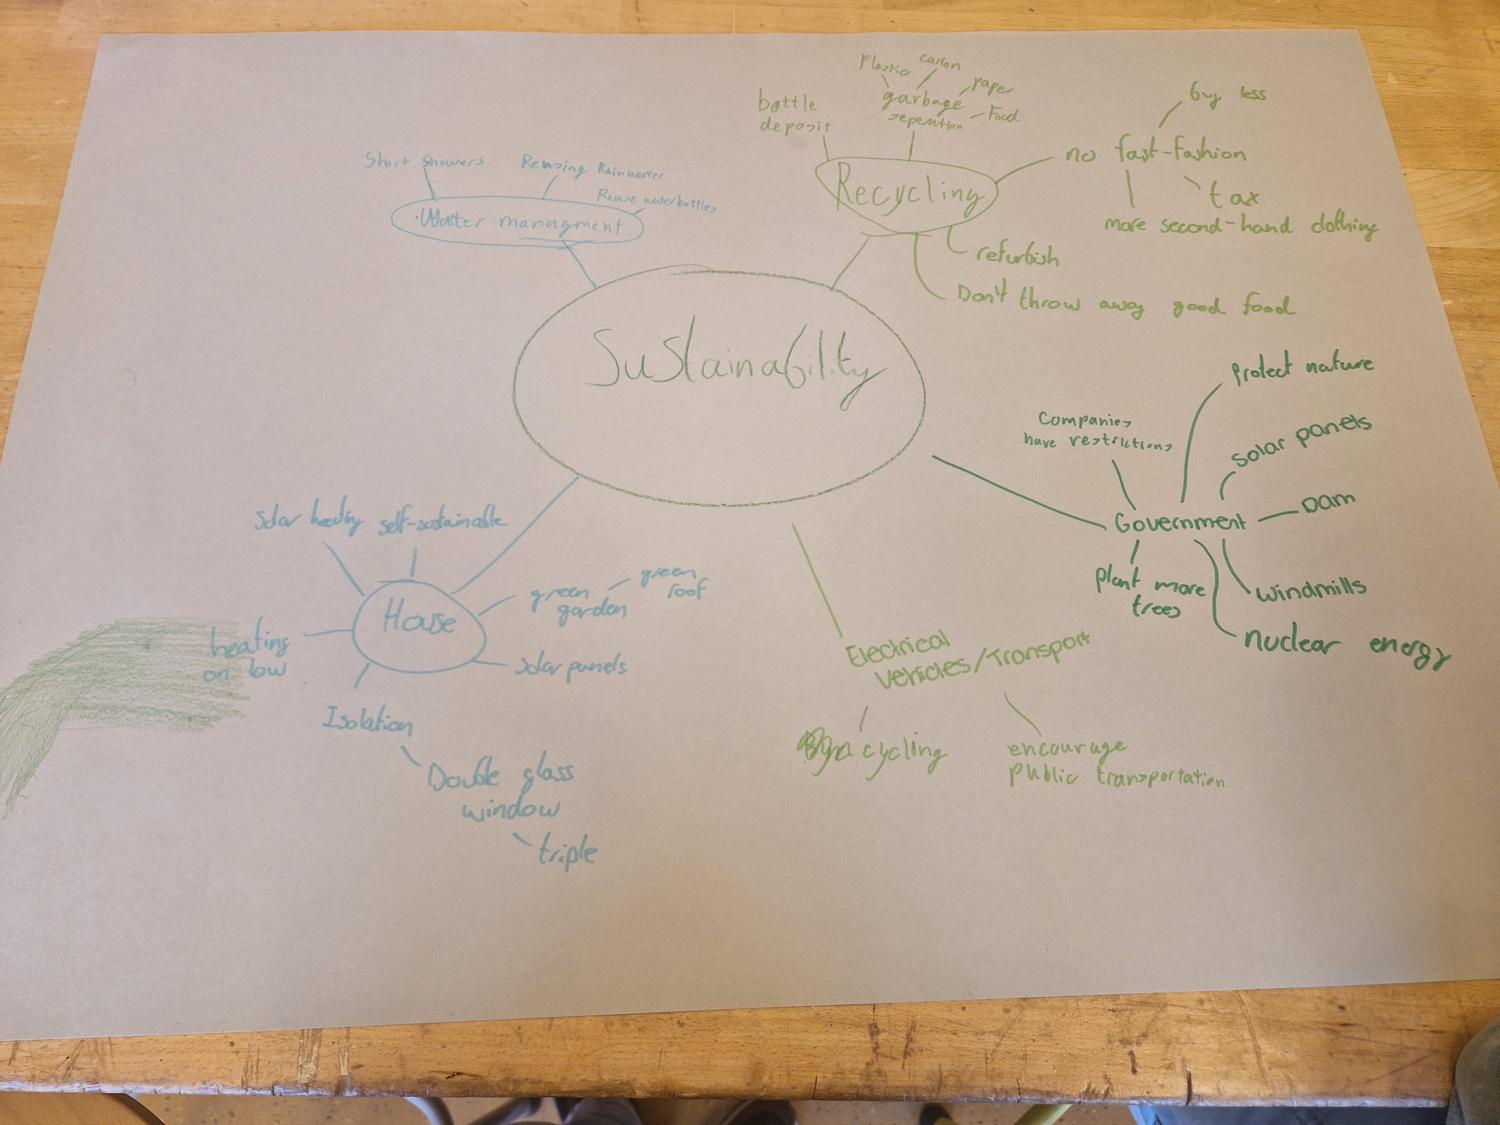 Plastic
carton
bottle
deposit
garbage
pape
Food
seperation
buy less
no fast-fashion
tax
more second-hand clothing
Short showers
Reusing Rainwater
Reuse waterbottles
Water managment
Recycling
refurbish
Don't throw away good food
Sustainability
protect nature
Companies
have restrictions
solar panels
Dam
Government
plant more
trees
windmills
nuclear energy
Solar heating
self-sustainable
green
garden
green
roof
House
heating
on low
Solar panels
Isolation
Double glass
window
triple
Electrical
Vehicles/Transport
cycling
encourage
public transportation